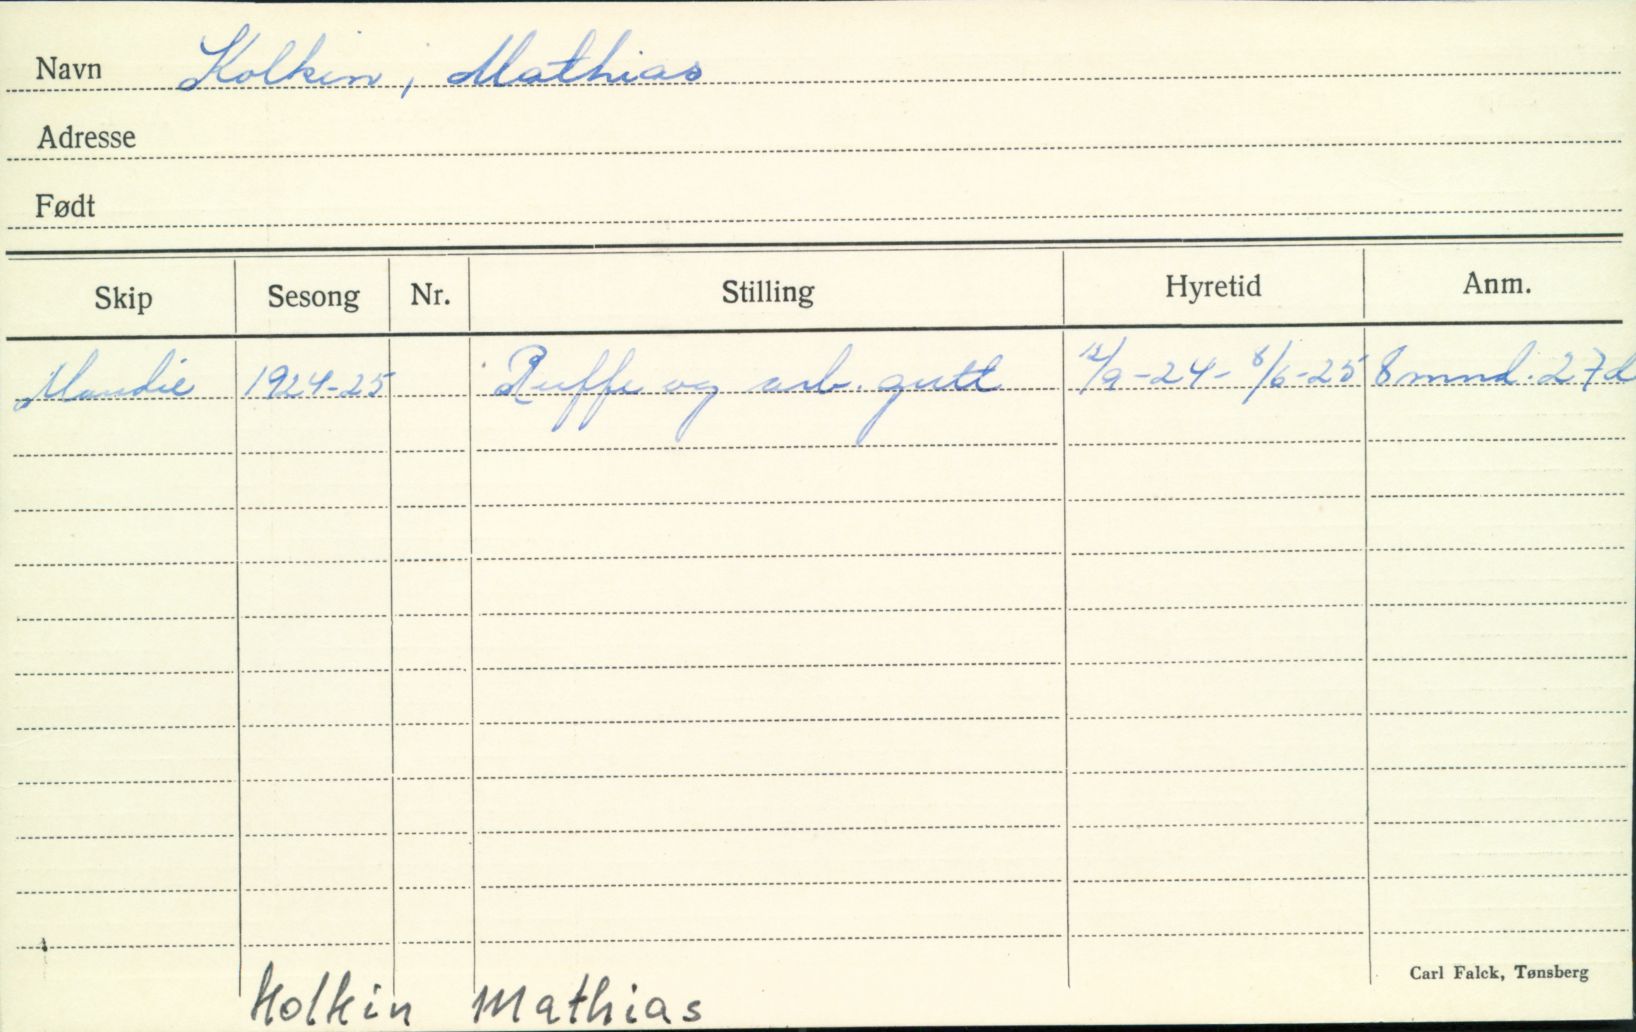 Navn Kolkin, Mathias
Adresse
Født
Skip Sesong Nr. Stilling Hyretid Anm.
Maudie 1924-25 Ruffe og arb. gutt 12/9-24- 8/6-25 8 mnd. 27d
Carl Falck, Tønsberg
Kolkin Mathias